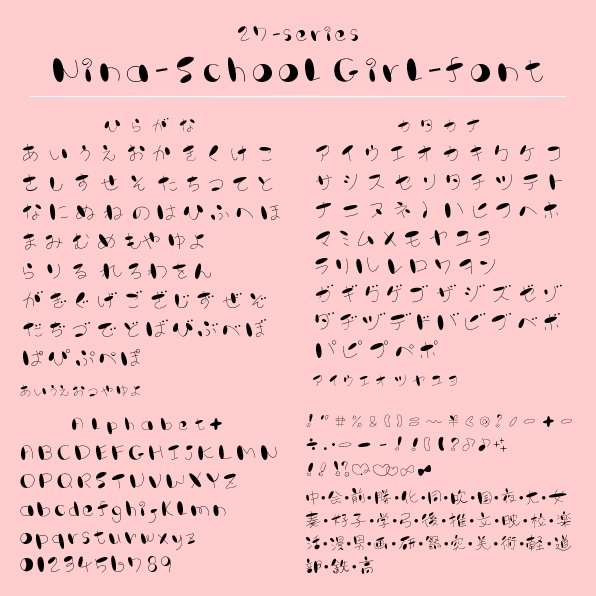 27-series
Nina-School Girl-font
ひらがな
あいうえおかきくけこ
さしすせそたちつてと
なにぬねのはひふへほ
まみむめもやゆよ
らりるれろわをん
がぎぐげござじずぜぞ
だぢづでどばびぶべぼ
ぱぴぷぺぽ
あいうえおつやゆよ
Alphabet+
ABCDEFGHIJKLMN
OPQRSTUVWXYZ
abcdefghijklmn
opqrstuvwxyz
0123456789
カタカナ
アイウエオカキクケコ
サシスセソタチツテト
ナニヌネノハヒフヘホ
マミムメモヤユヨ
ラリルレロワヲン
ガギグゲゴザジズゼゾ
ダヂヅデドバビブベボ
パピプペポ
アイウエオツヤユヨ
中・会・前・勝・化・同・成・国・夜・大・女
妻・好・子・学・弓・後・推・文・映・校・楽
活・漫・男・画・研・祭・究・美・術・軽・道
部・鉄・高